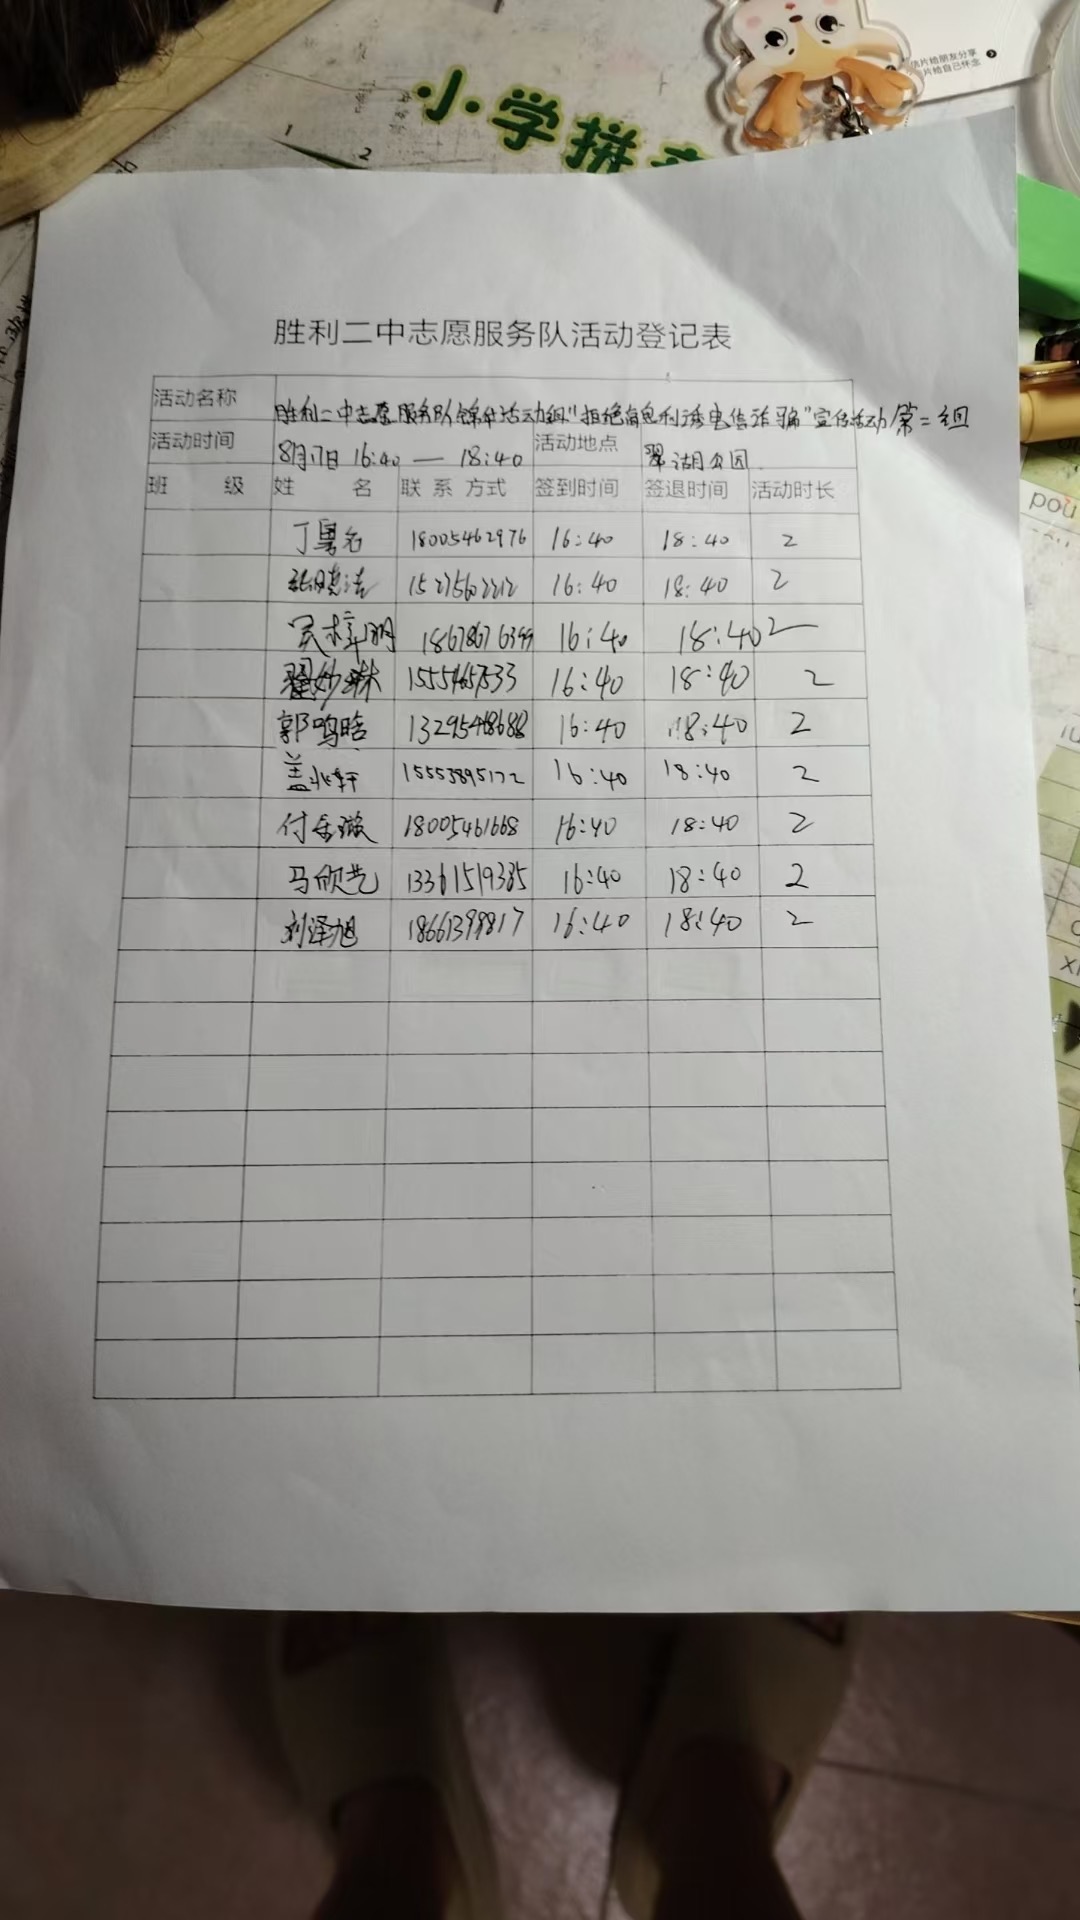 小学拼
片给自己怀念
胜利二中志愿服务队活动登记表
活动名称 胜利二中志愿服务队锦华活动组"拒绝高息利诱电信诈骗"宣传活动第二组
活动时间 8月17日 16:40 — 18:40 活动地点 翠湖公园
班 级 姓 名 联系方式 签到时间 签退时间 活动时长
丁 名 18005462976 16:40 18:40 2
16:40 18:40 2
吴梓明 18678676399 16:40 18:40 2
翟妙琳 16:40 18:40 2
郭鸣晗 13295468688 16:40 18:40 2
盖兆轩 15553895172 16:40 18:40 2
付 18005461668 16:40 18:40 2
马欣艺 13361519385 16:40 18:40 2
刘泽旭 18661399817 16:40 18:40 2